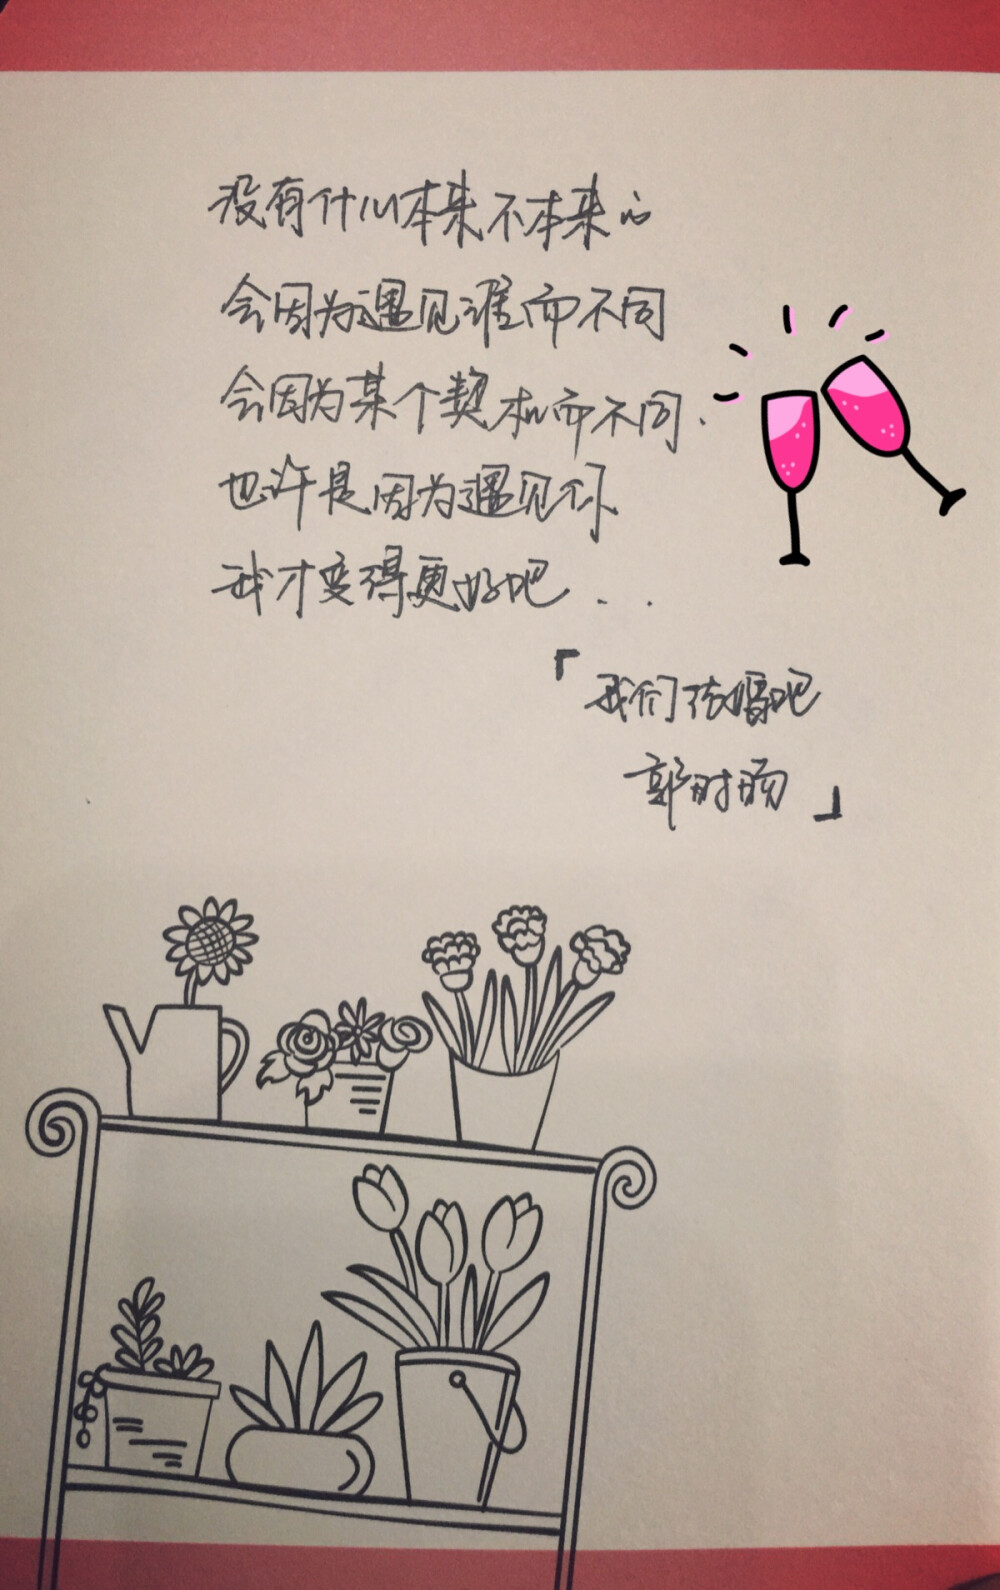 没有什么本来不本来的
会因为遇见谁而不同
会因为某个契机而不同.
也许是因为遇见你
我才变得更好吧...
「我们结婚吧
郭时旸」